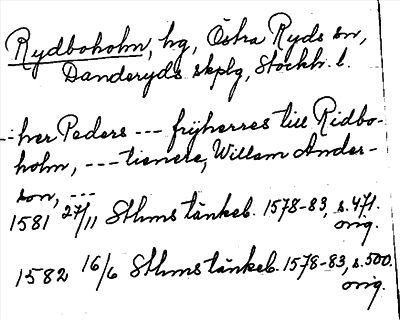 Rydboholm, hg, Östra Ryds sn,
Danderyds skplg, Stockh. l.
--- her Peders --- frijherres till Ridbo-
holm, --- tienere, Willam Ander-
son, ---
1581 27/11 Sthms tänkeb. 1578-83, s. 471.
orig.
1582 16/6 Sthms tänkeb. 1578-83, s. 500.
orig.